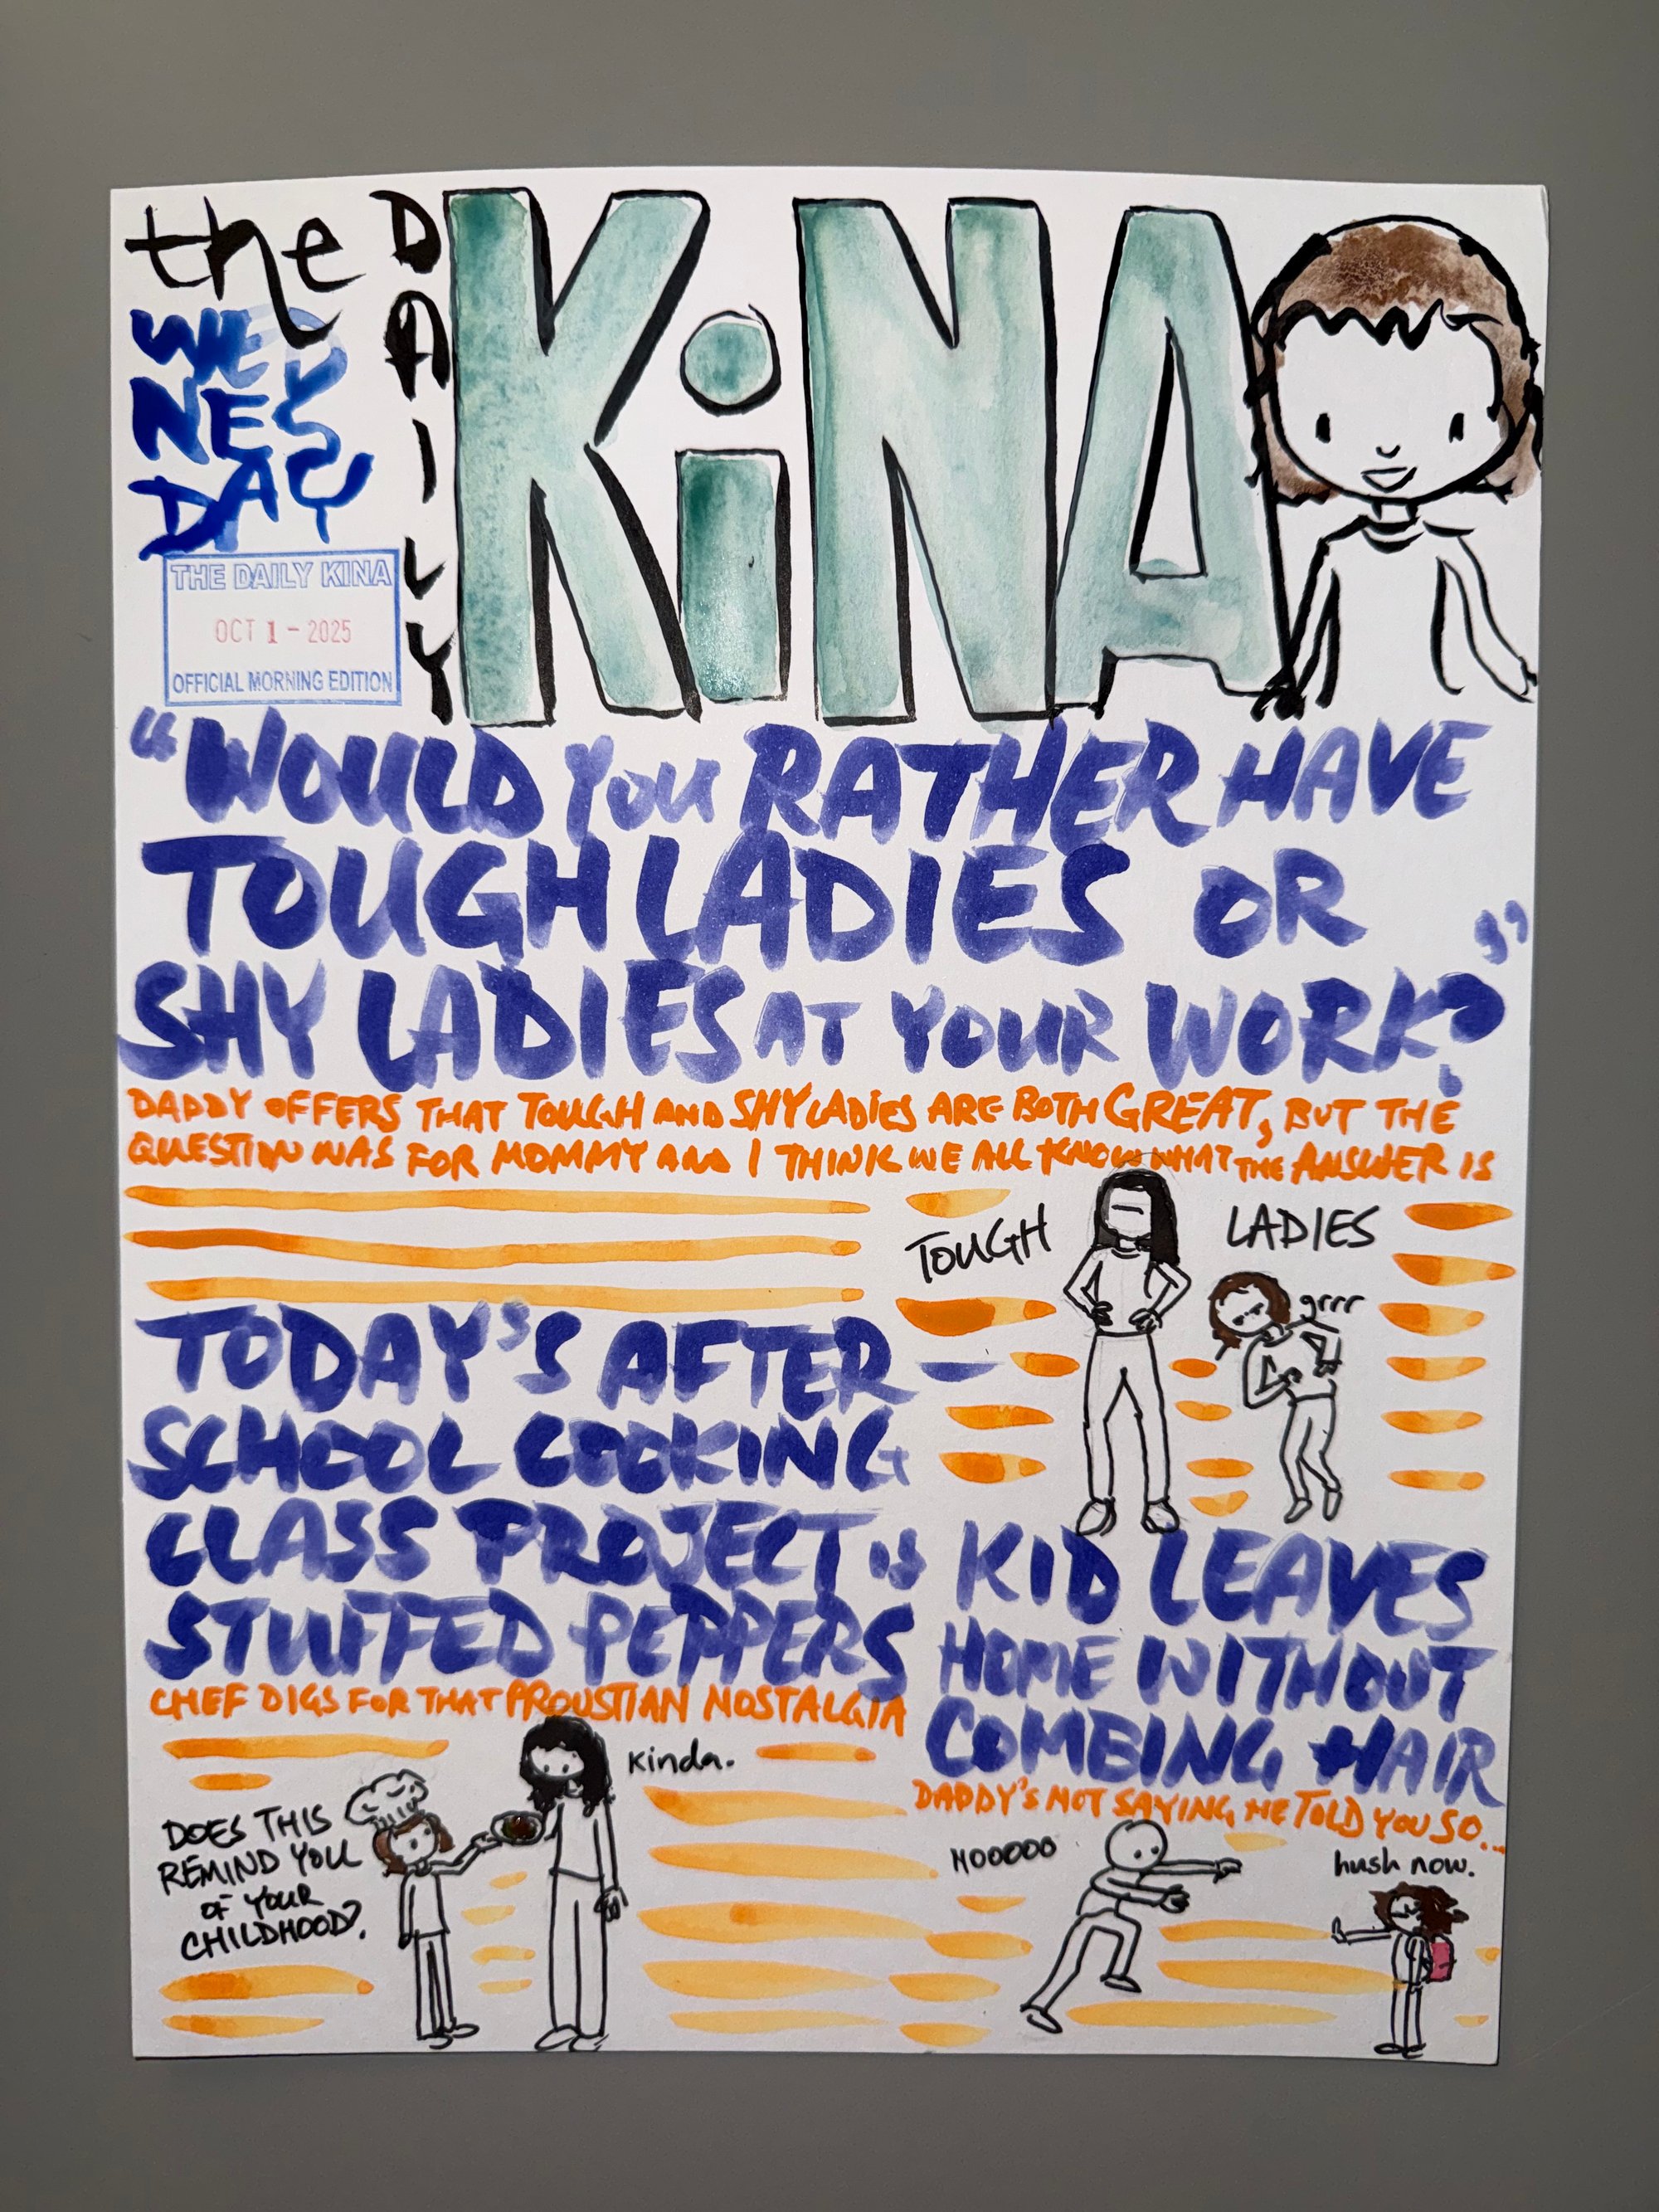 the
DAILY
KiNA
WEDNESDAY
THE DAILY KINA
OCT 1 - 2025
OFFICIAL MORNING EDITION
"WOULD YOU RATHER HAVE
TOUGH LADIES OR
SHY LADIES AT YOUR WORK?"
DADDY OFFERS THAT TOUGH AND SHY LADIES ARE BOTH GREAT, BUT THE
QUESTION WAS FOR MOMMY AND I THINK WE ALL KNOW WHAT THE ANSWER IS
TOUGH LADIES
grrr
TODAY'S AFTER-
SCHOOL COOKING
CLASS PROJECT is
STUFFED PEPPERS
CHEF DIGS FOR THAT PROUSTIAN NOSTALGIA
Kinda.
DOES THIS
REMIND YOU
OF YOUR
CHILDHOOD?
KID LEAVES
HOME WITHOUT
COMBING HAIR
DADDY'S NOT SAYING HE TOLD YOU SO...
NOOOOO
hush now.